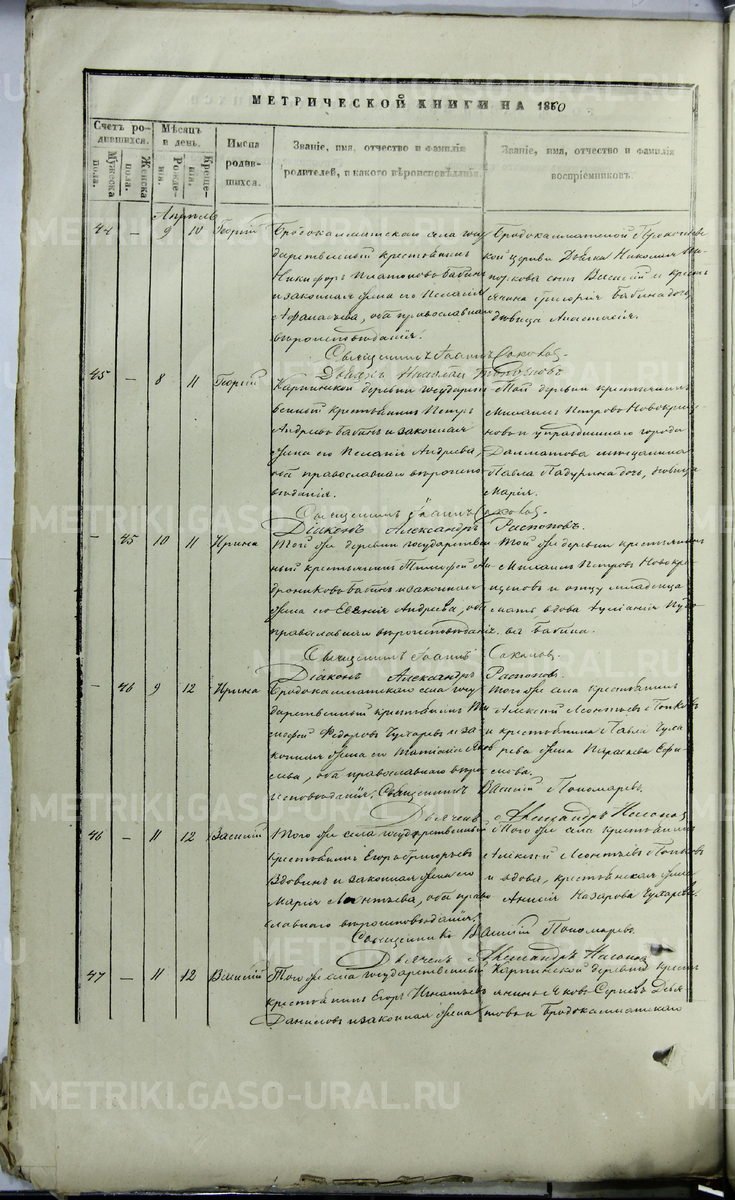 МЕТРИЧЕСКОЙ КНИГИ НА 1860
Счетъ родившихся.
Мужеска пола.
Женска пола.
Мѣсяцъ и день.
Рожденія.
Крещенія.
Имена родившихся.
Званіе, имя, отчество и фамилія родителей, и какого вѣроисповѣданія.
Званіе, имя, отчество и фамилія воспріемниковъ.
Апрѣль
44 — 9 10 Георгій
Бродокалматскаго села госу
дарственный крестьянинъ
Никифоръ Платоновъ Бабинъ
и законная жена его Пелагія
оба православнаго
вѣроисповѣданія.
Бродокалматской
кой церкви Дьячка Николая
сынъ Василій и кресть
янина Григорія Бабина дочь
дѣвица Анастасія.
Священникъ Іоаннъ Соколовъ.
Николай
45 — 8 11 Георгій
деревни государст
венный крестьянинъ Петръ
Андреевъ Бабинъ и законная
жена его Пелагія Андреева,
оба православнаго вѣроиспо
вѣданія.
Той деревни крестьянинъ
Михаилъ Петровъ Новокрещ
новъ и города
Далматова мѣщанина
Павла дочь, дѣвица
Марія.
Священникъ Іоаннъ Соколовъ.
Діаконъ Александръ Распоповъ.
— 45 10 11 Ирина
Той же деревни государствен
ный крестьянинъ Тимофей Ан
дрониковъ Бабинъ и законная
жена его Евгенія Андреева, оба
православнаго вѣроисповѣданія.
Той же деревни крестьянинъ
Михаилъ Петровъ Новокре
щеновъ и отцу младенца
мать вдова
ва Бабина.
Священникъ Іоаннъ Соколовъ.
Діаконъ Александръ Распоповъ.
— 46 9 12 Ирина
Бродокалматскаго села госу
дарственный крестьянинъ Ти
мофей Федоровъ Чухаревъ и за
конная жена его Татіана Яков
лева, оба православнаго вѣро
исповѣданія.
Того же села крестьянинъ
Алексій Леонтьевъ Попковъ
и крестьянина Павла Чуха
рева жена Параскева Ефи
мова.
Священникъ Василій Пономаревъ.
Дьячекъ Александръ
46 — 11 12 Василій
Того же села государственный
крестьянинъ Егоръ Григорьевъ
Вдовинъ и законная жена его
Марія Леонтьева, оба право
славнаго вѣроисповѣданія,
Того же села крестьянинъ
Алексій Леонтьевъ Попковъ
и вдова, крестьянская жена
Анисія Назарова Чухарева.
Священникъ Василій Пономаревъ.
Дьячекъ Александръ
47 — 11 12 Василій
Того же села государственный
крестьянинъ Егоръ Игнатьевъ
Даниловъ и законная жена
деревни кресть
янинъ Яковъ Сергіевъ Девя
товъ и Бродокалматскаго
METRIKI.GASO-URAL.RU